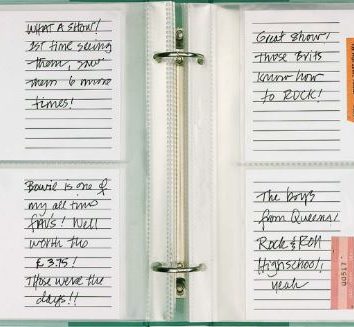 WHAT A SHOW!
1ST time seeing
them, saw
them 6 more
times!
Bowie is one of
my all time
FAVS! Well
worth the
£3.75!
Those were the
days!!
Great show!
Those Brits
know how
to ROCK!
The boys
from Queens!
Rock & Roll
Highschool,
yeah
00517